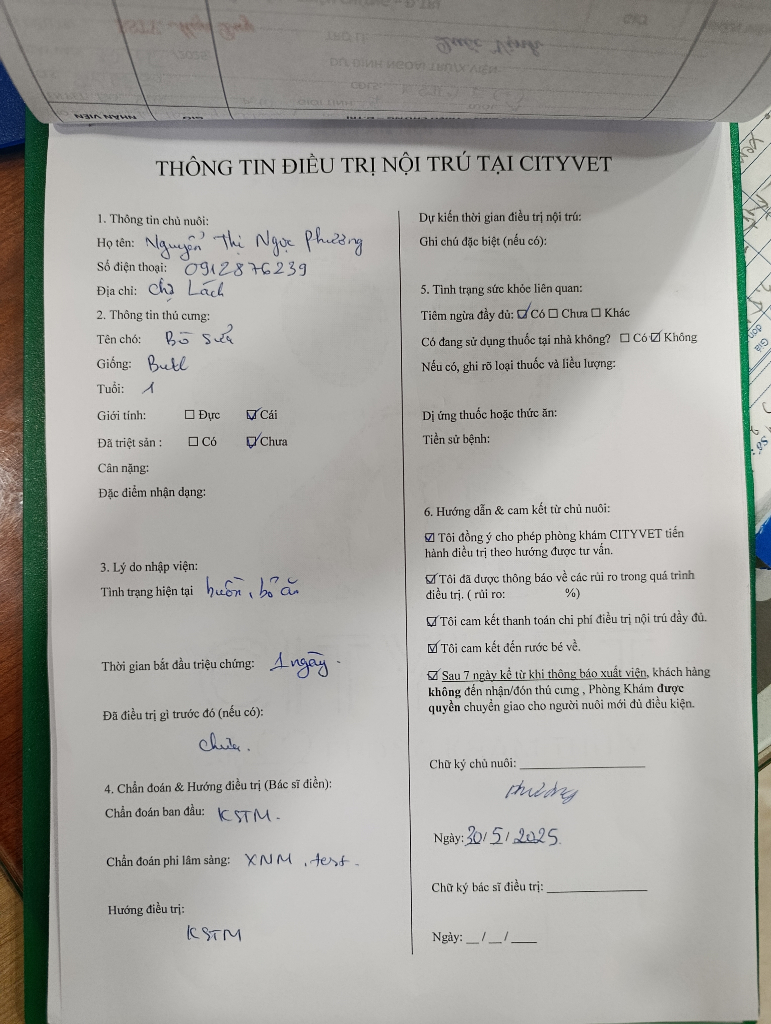 THÔNG TIN ĐIỀU TRỊ NỘI TRÚ TẠI CITYVET
1. Thông tin chủ nuôi:
Họ tên: Nguyễn Thị Ngọc Phương
Số điện thoại: 0912876239
Địa chỉ: Chợ Lách
2. Thông tin thú cưng:
Tên chó: Bò Sữa
Giống: Bull
Tuổi: 1
Giới tính: ☐ Đực ☑ Cái
Đã triệt sản : ☐ Có ☑ Chưa
Cân nặng:
Đặc điểm nhận dạng:
3. Lý do nhập viện:
Tình trạng hiện tại buồn, bỏ ăn
Thời gian bắt đầu triệu chứng: 1 ngày.
Đã điều trị gì trước đó (nếu có):
chưa.
4. Chẩn đoán & Hướng điều trị (Bác sĩ điền):
Chẩn đoán ban đầu: KSTM.
Chẩn đoán phi lâm sàng: XNM, test.
Hướng điều trị:
KSTM
Dự kiến thời gian điều trị nội trú:
Ghi chú đặc biệt (nếu có):
5. Tình trạng sức khỏe liên quan:
Tiêm ngừa đầy đủ: ☑ Có ☐ Chưa ☐ Khác
Có đang sử dụng thuốc tại nhà không? ☐ Có ☑ Không
Nếu có, ghi rõ loại thuốc và liều lượng:
Dị ứng thuốc hoặc thức ăn:
Tiền sử bệnh:
6. Hướng dẫn & cam kết từ chủ nuôi:
☑ Tôi đồng ý cho phép phòng khám CITYVET tiến
hành điều trị theo hướng được tư vấn.
☑ Tôi đã được thông báo về các rủi ro trong quá trình
điều trị. ( rủi ro: %)
☑ Tôi cam kết thanh toán chi phí điều trị nội trú đầy đủ.
☑ Tôi cam kết đến rước bé về.
☑ Sau 7 ngày kể từ khi thông báo xuất viện, khách hàng
không đến nhận/đón thú cưng , Phòng Khám được
quyền chuyển giao cho người nuôi mới đủ điều kiện.
Chữ ký chủ nuôi: ____________
Phương
Ngày: 30/5/2025
Chữ ký bác sĩ điều trị: ____________
Ngày: __/__/____